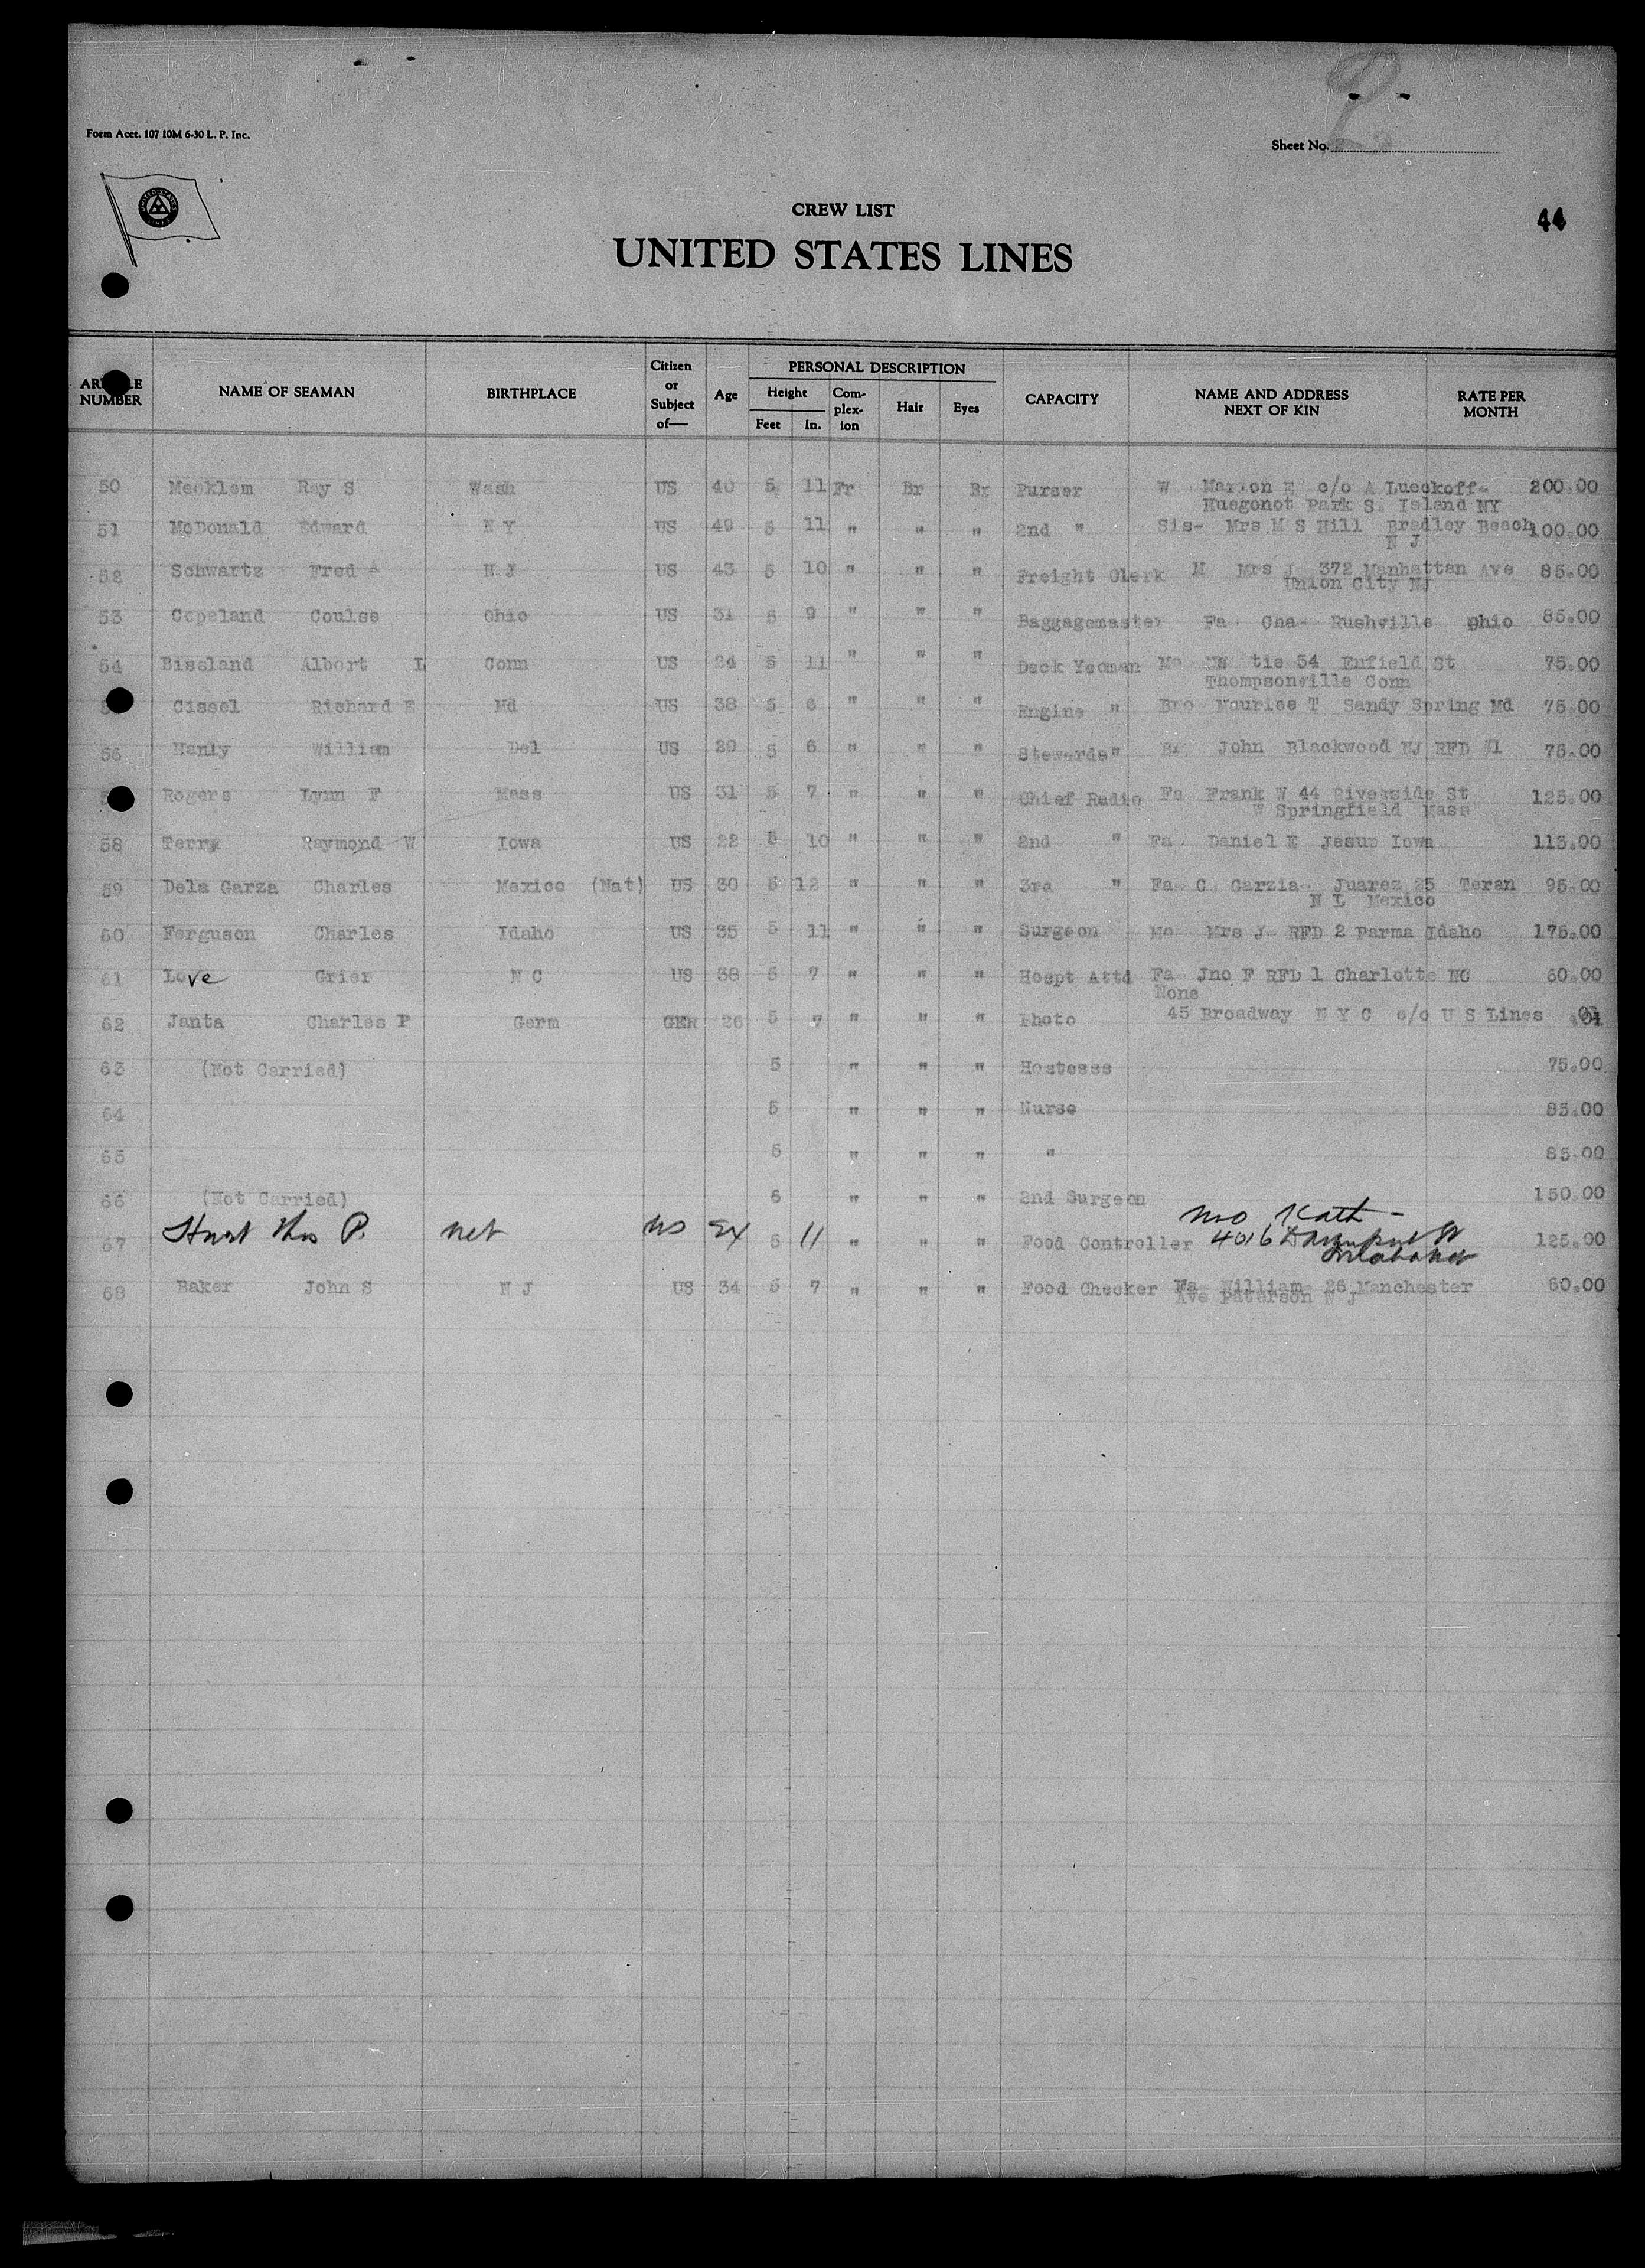 2
Form Acct. 107 10M 6-30 L. P. Inc.
Sheet No.
CREW LIST
44
UNITED STATES LINES
ARTICLE NUMBER NAME OF SEAMAN BIRTHPLACE Citizen or Subject of— Age PERSONAL DESCRIPTION Height Feet In. Com-plex-ion Hair Eyes CAPACITY NAME AND ADDRESS NEXT OF KIN RATE PER MONTH
50 Mecklem Ray S Wash US 40 5 11 Fr Br Br Purser W Marion E c/o A Lueckoff- 200.00
Huegonot Park S. Island NY
51 McDonald Edward N Y US 49 5 11 " " " 2nd " Sis- Mrs M S Hill Bradley Beach 100.00
N J
52 Schwartz Fred N J US 43 5 10 " " " Freight Clerk M Mrs J 372 Manhattan Ave 85.00
Union City NJ
53 Copeland Coulse Ohio US 31 5 9 " " " Baggagemaster Fa Cha- Rushville Ohio 85.00
54 Bissland Albert L Conn US 24 5 11 " " " Deck Yeoman Mo tie 34 Enfield St 75.00
Thompsonville Conn
Cissel Richard E Md US 38 5 6 " " " Engine " Bro Maurice T Sandy Spring Md 75.00
56 Hanly William Del US 29 5 6 " " " Stewards" John Blackwood NJ RFD #1 75.00
Rogers Lynn F Mass US 31 5 7 " " " Chief Radio Fa Frank W 44 Riverside St 125.00
W Springfield Mass
58 Terry Raymond W Iowa US 22 5 10 " " " 2nd " Fa. Daniel E Jesup Iowa 115.00
59 Dela Garza Charles Mexico (Nat) US 30 5 12 " " " 3rd " Fa- C Garzia- Juarez 25 Teran 95.00
N L Mexico
60 Ferguson Charles Idaho US 35 5 11 " " " Surgeon Mo- Mrs J- RFD 2 Parma Idaho 175.00
61 Love Grier N C US 38 5 7 " " " Hospt Attd Fa- Jno F RFD 1 Charlotte NC 60.00
None
62 Janta Charles P Germ GER 26 5 7 " " " Photo 45 Broadway N Y C c/o U S Lines .01
63 (Not Carried) 5 " " " Hostesss 75.00
64 5 " " " Nurse 85.00
65 5 " " " " 85.00
66 (Not Carried) 6 " " " 2nd Surgeon 150.00
67 Thos P. US 5 11 " " " Food Controller Mo Kath - 4016 St 125.00
68 Baker John S N J US 34 5 7 " " " Food Checker Fa- William- 26 Manchester 60.00
Ave Paterson N J